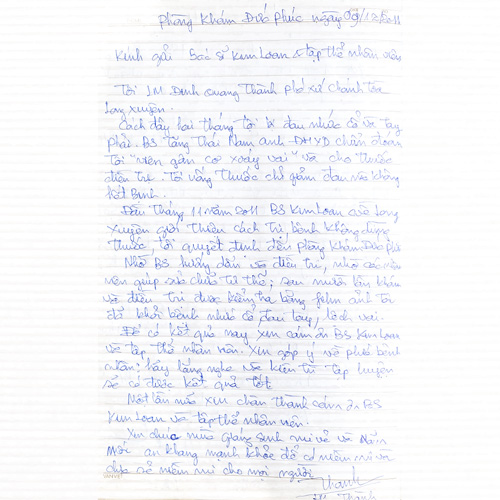 Phòng Khám Đức Phúc ngày 09/12/2011
Kính gửi Bác sĩ Kim Loan & tập thể nhân viên
Tôi LM Đinh Quang Thành Phó xứ chánh tòa
Long Xuyên.
Cách đây hai tháng tôi bị đau nhức cổ và tay
phải. BS Tăng Thái Nam anh ĐHYD chẩn đoán
Tôi "viêm gân cơ xoay vai" và cho thuốc
điều trị. Tôi uống thuốc chỉ giảm đau mà không
hết bệnh.
Đầu tháng 11 năm 2011 BS Kim Loan về Long
Xuyên giới thiệu cách trị bệnh không dùng
thuốc, tôi quyết định đến phòng khám Đức Phúc
Nhờ BS hướng dẫn và điều trị, nhờ các nhân
viên giúp sửa chữa tư thế; sau mười lần khám
và điều trị được kiểm tra bằng film ảnh tôi
đã khỏi bệnh nhức cổ đau lưng, lệch vai.
Để có kết quả này xin cám ơn BS Kim Loan
và tập thể nhân viên. Xin góp ý về phía bệnh
nhân: hãy lắng nghe và kiên trì tập luyện
sẽ có được kết quả tốt
Một lần nữa xin chân thành cám ơn BS
Kim Loan và tập thể nhân viên.
Xin chúc mùa Giáng Sinh vui vẻ và Năm
Mới an khang mạnh khỏe để có niềm vui và
chia sẻ niềm vui cho mọi người
Thanh
LM Thành